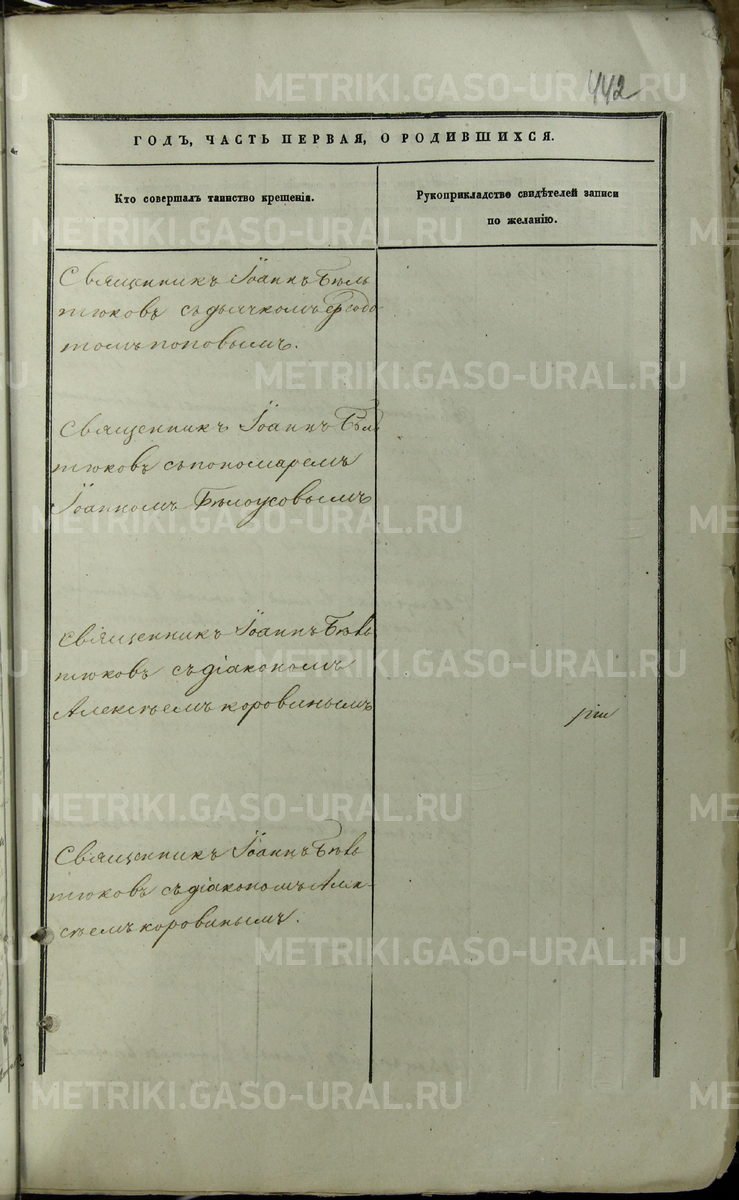 442
ГОДЪ, ЧАСТЬ ПЕРВАЯ, О РОДИВШИХСЯ.
Кто совершалъ таинство крещенія.
Рукоприкладство свидѣтелей записи
по желанію.
Священникъ Іоаннъ Бѣль
тюковъ съ дьячкомъ Ѳеодо
томъ поповымъ.
Священникъ Іоаннъ Бѣль
тюковъ съ пономаремъ
Іоанномъ Бѣлоусовымъ
Священникъ Іоаннъ Бѣль
тюковъ съ діакономъ
Алексѣемъ коровинымъ
Священникъ Іоаннъ Бѣль
тюковъ съ діакономъ Алек-
сѣемъ коровинымъ.
METRIKI.GASO-URAL.RU